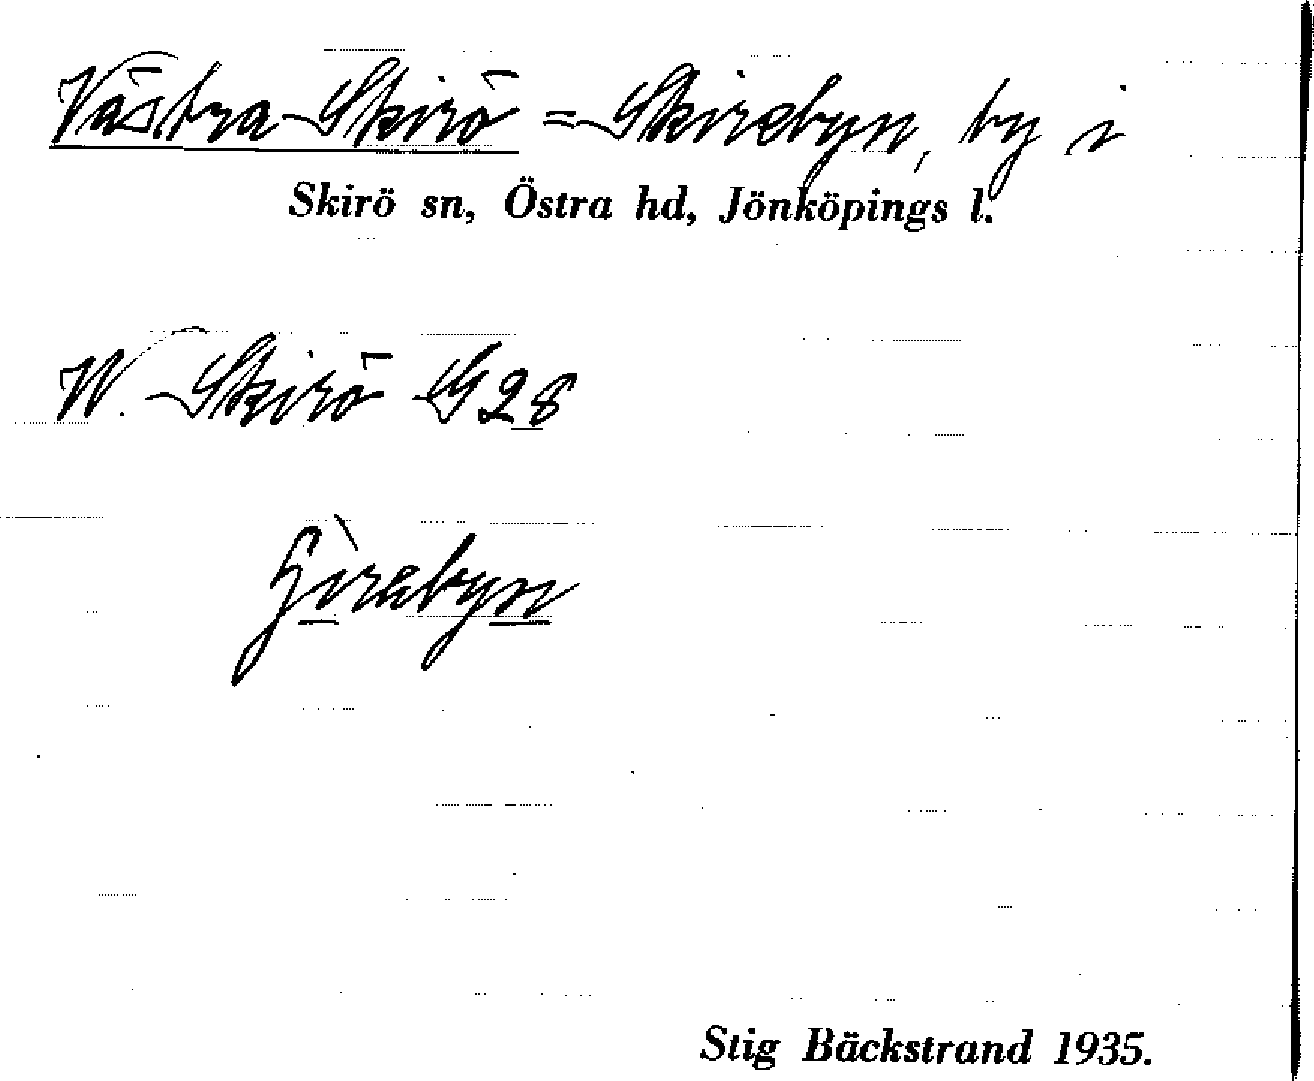 Västra Skirö = Skirebyn, by i
Skirö sn, Östra hd, Jönköpings l.
W. Skirö G 28
Stig Bäckstrand 1935.